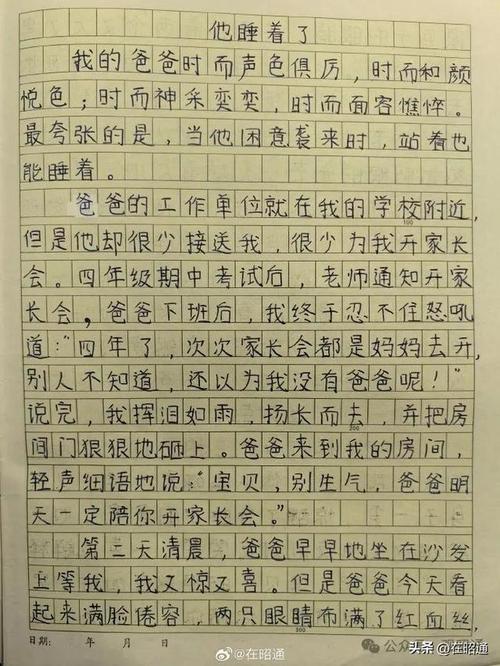 他睡着了
我的爸爸时而声色俱厉，时而和颜
悦色；时而神采奕奕，时而面容憔悴。
最夸张的是，当他困意袭来时，站着也
能睡着。
爸爸的工作单位就在我的学校附近，
但是他却很少接送我，很少为我开家长
会。四年级期中考试后，老师通知开家
长会，爸爸下班后，我终于忍不住怒吼
道："四年了，次次家长会都是妈妈去开，
别人不知道，还以为我没有爸爸呢！"
说完，我挥泪如雨，扬长而去，并把房
间门狠狠地砸上。爸爸来到我的房间，
轻声细语地说："宝贝，别生气，爸爸明
天一定陪你开家长会。"
第二天清晨，爸爸早早地坐在沙发
上等我，我又惊又喜。但是爸爸今天看
起来满脸倦容，两只眼睛布满了红血丝，
日期： 年 月 日
@在昭通
公众
头条 @在昭通